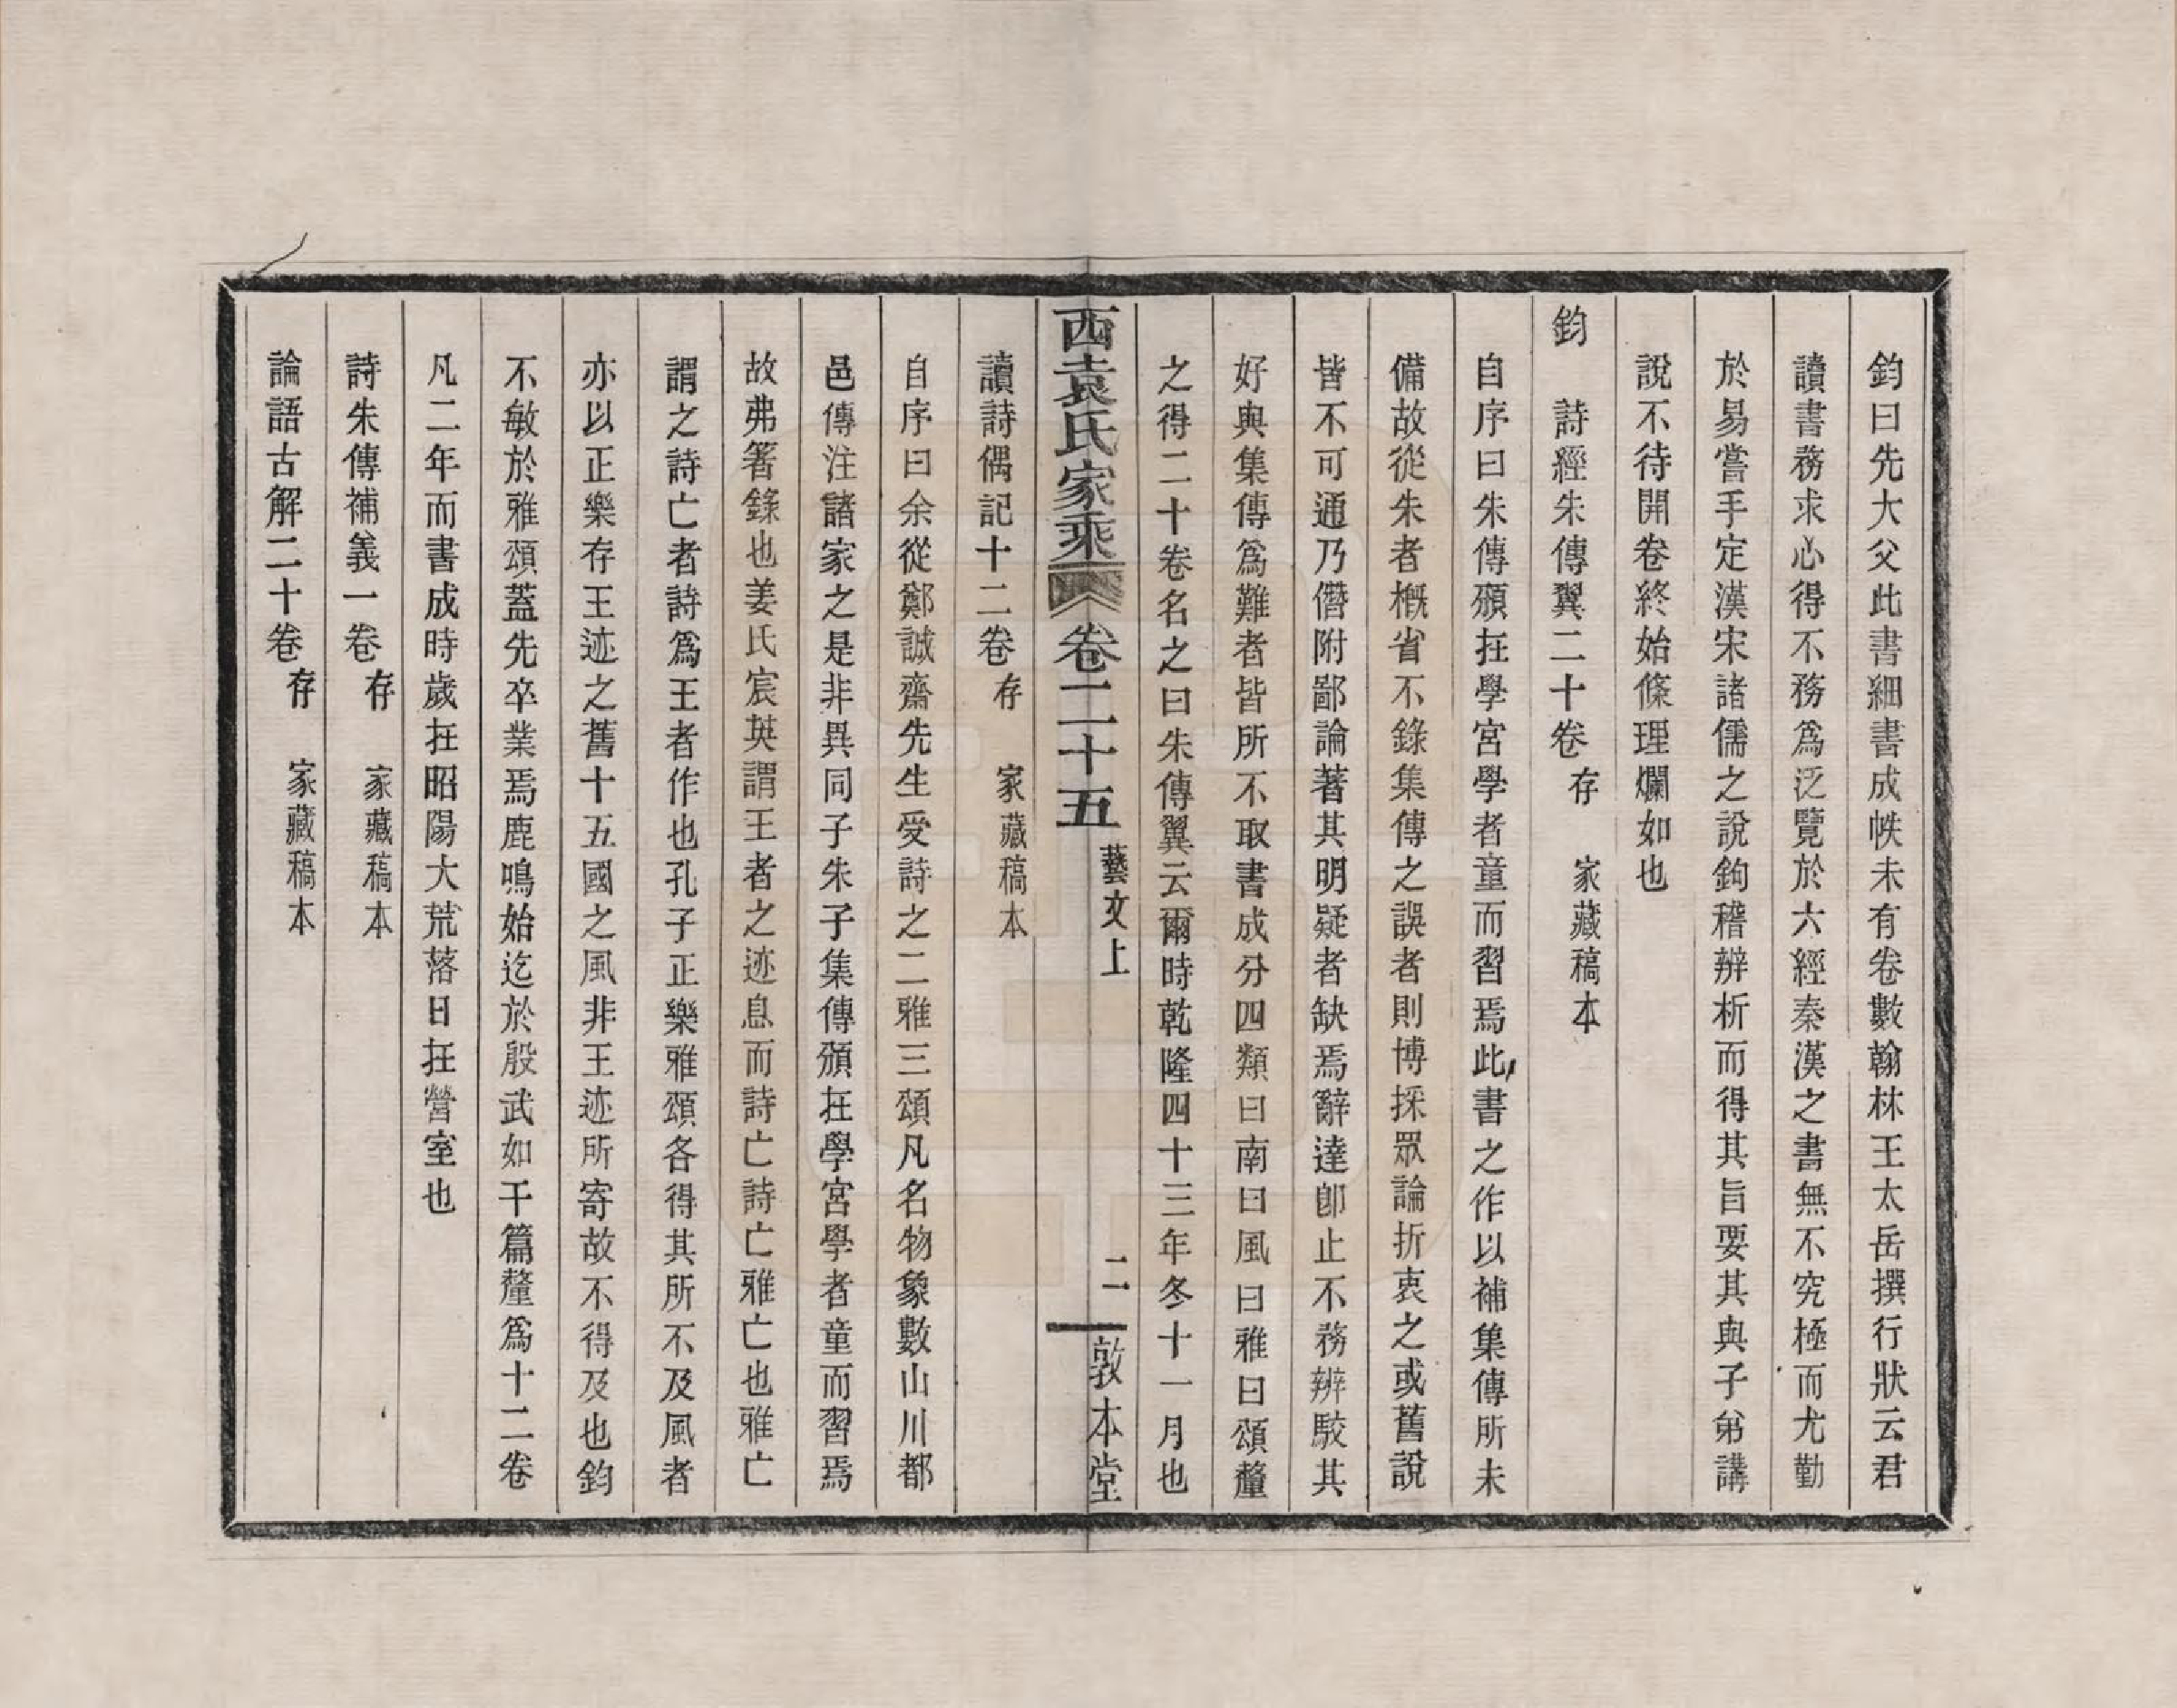 鈞曰先大父此書細書成帙未有卷數翰林王太岳撰行狀云君
讀書務求心得不務爲泛覽於六經秦漢之書無不究極而尤勤
於易嘗手定漢宋諸儒之說鉤稽辨析而得其旨要其與子弟講
說不待開卷終始條理爛如也
鈞　詩經朱傳翼二十卷存　家藏稿本
自序曰朱傳頒在學宮學者童而習焉此書之作以補集傳所未
備故從朱者槪省不錄集傳之誤者則博採眾論折衷之或舊說
皆不可通乃僭附鄙論著其明疑者缺焉辭達卽止不務辨駮其
好與集傳爲難者皆所不取書成分四類曰南曰風曰雅曰頌釐
之得二十卷名之曰朱傳翼云爾時乾隆四十三年冬十一月也
西袁氏家乘　卷二十五　藝文上　二　敦本堂
讀詩偶記十二卷存　家藏稿本
自序曰余從鄭誠齋先生受詩之二雅三頌凡名物象數山川都
邑傳注諸家之是非異同子朱子集傳頒在學宮學者童而習焉
故弗箸錄也姜氏宸英謂王者之迹息而詩亡詩亡雅亡也雅亡
謂之詩亡者詩爲王者作也孔子正樂雅頌各得其所不及風者
亦以正樂存王迹之舊十五國之風非王迹所寄故不得及也鈞
不敏於雅頌蓋先卒業焉鹿鳴始迄於殷武如干篇釐爲十二卷
凡二年而書成時歲在昭陽大荒落日在營室也
詩朱傳補義一卷存　家藏稿本
論語古解二十卷存　家藏稿本